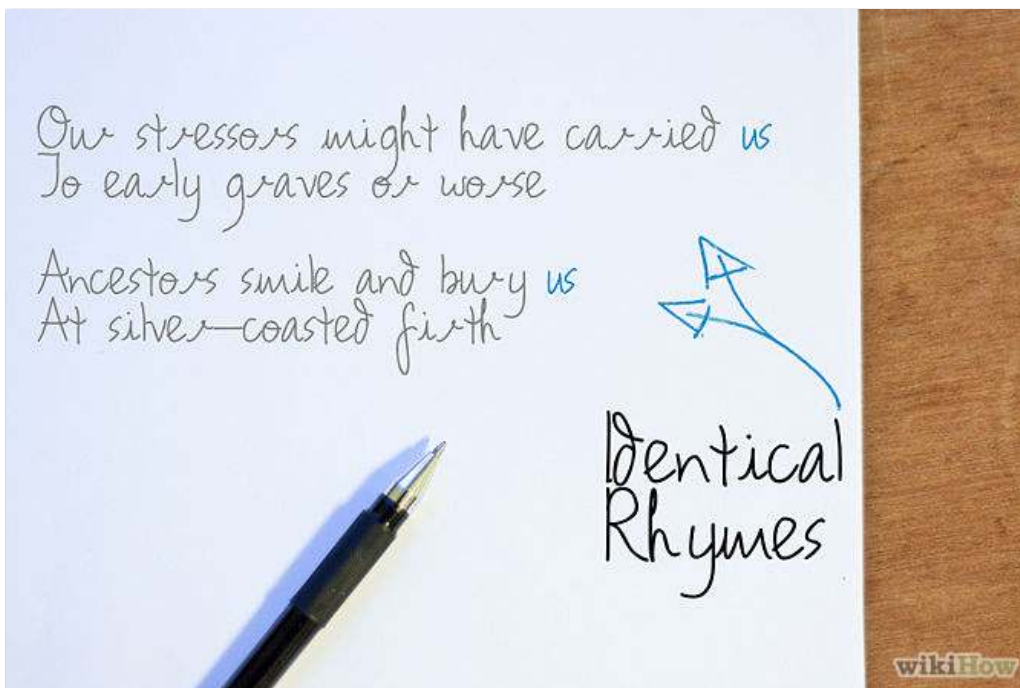 Our stressors might have carried us
To early graves or worse
Ancestors smile and bury us
At silver-coasted firth
Identical
Rhymes
wikiHow